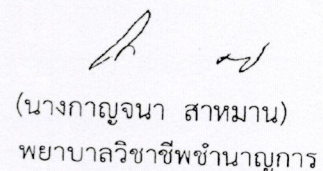 (นางกาญจนา สาหมาน)
พยาบาลวิชาชีพชำนาญการ